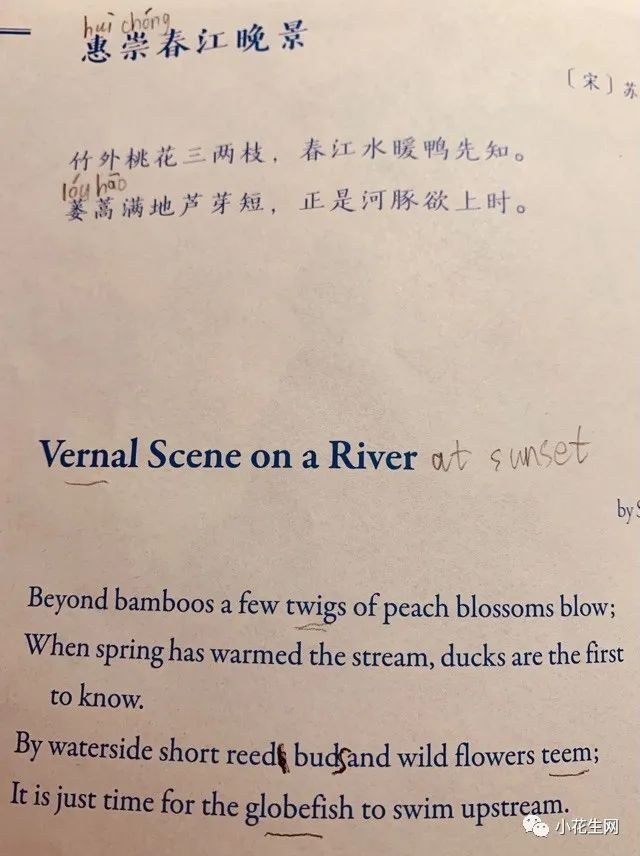 huì chóng
惠崇春江晚景
〔宋〕苏
竹外桃花三两枝，春江水暖鸭先知。
lóu hāo
蒌蒿满地芦芽短，正是河豚欲上时。
Vernal Scene on a River at sunset
by S
Beyond bamboos a few twigs of peach blossoms blow;
When spring has warmed the stream, ducks are the first
to know.
By waterside short reed buds and wild flowers teem;
It is just time for the globefish to swim upstream.
小花生网